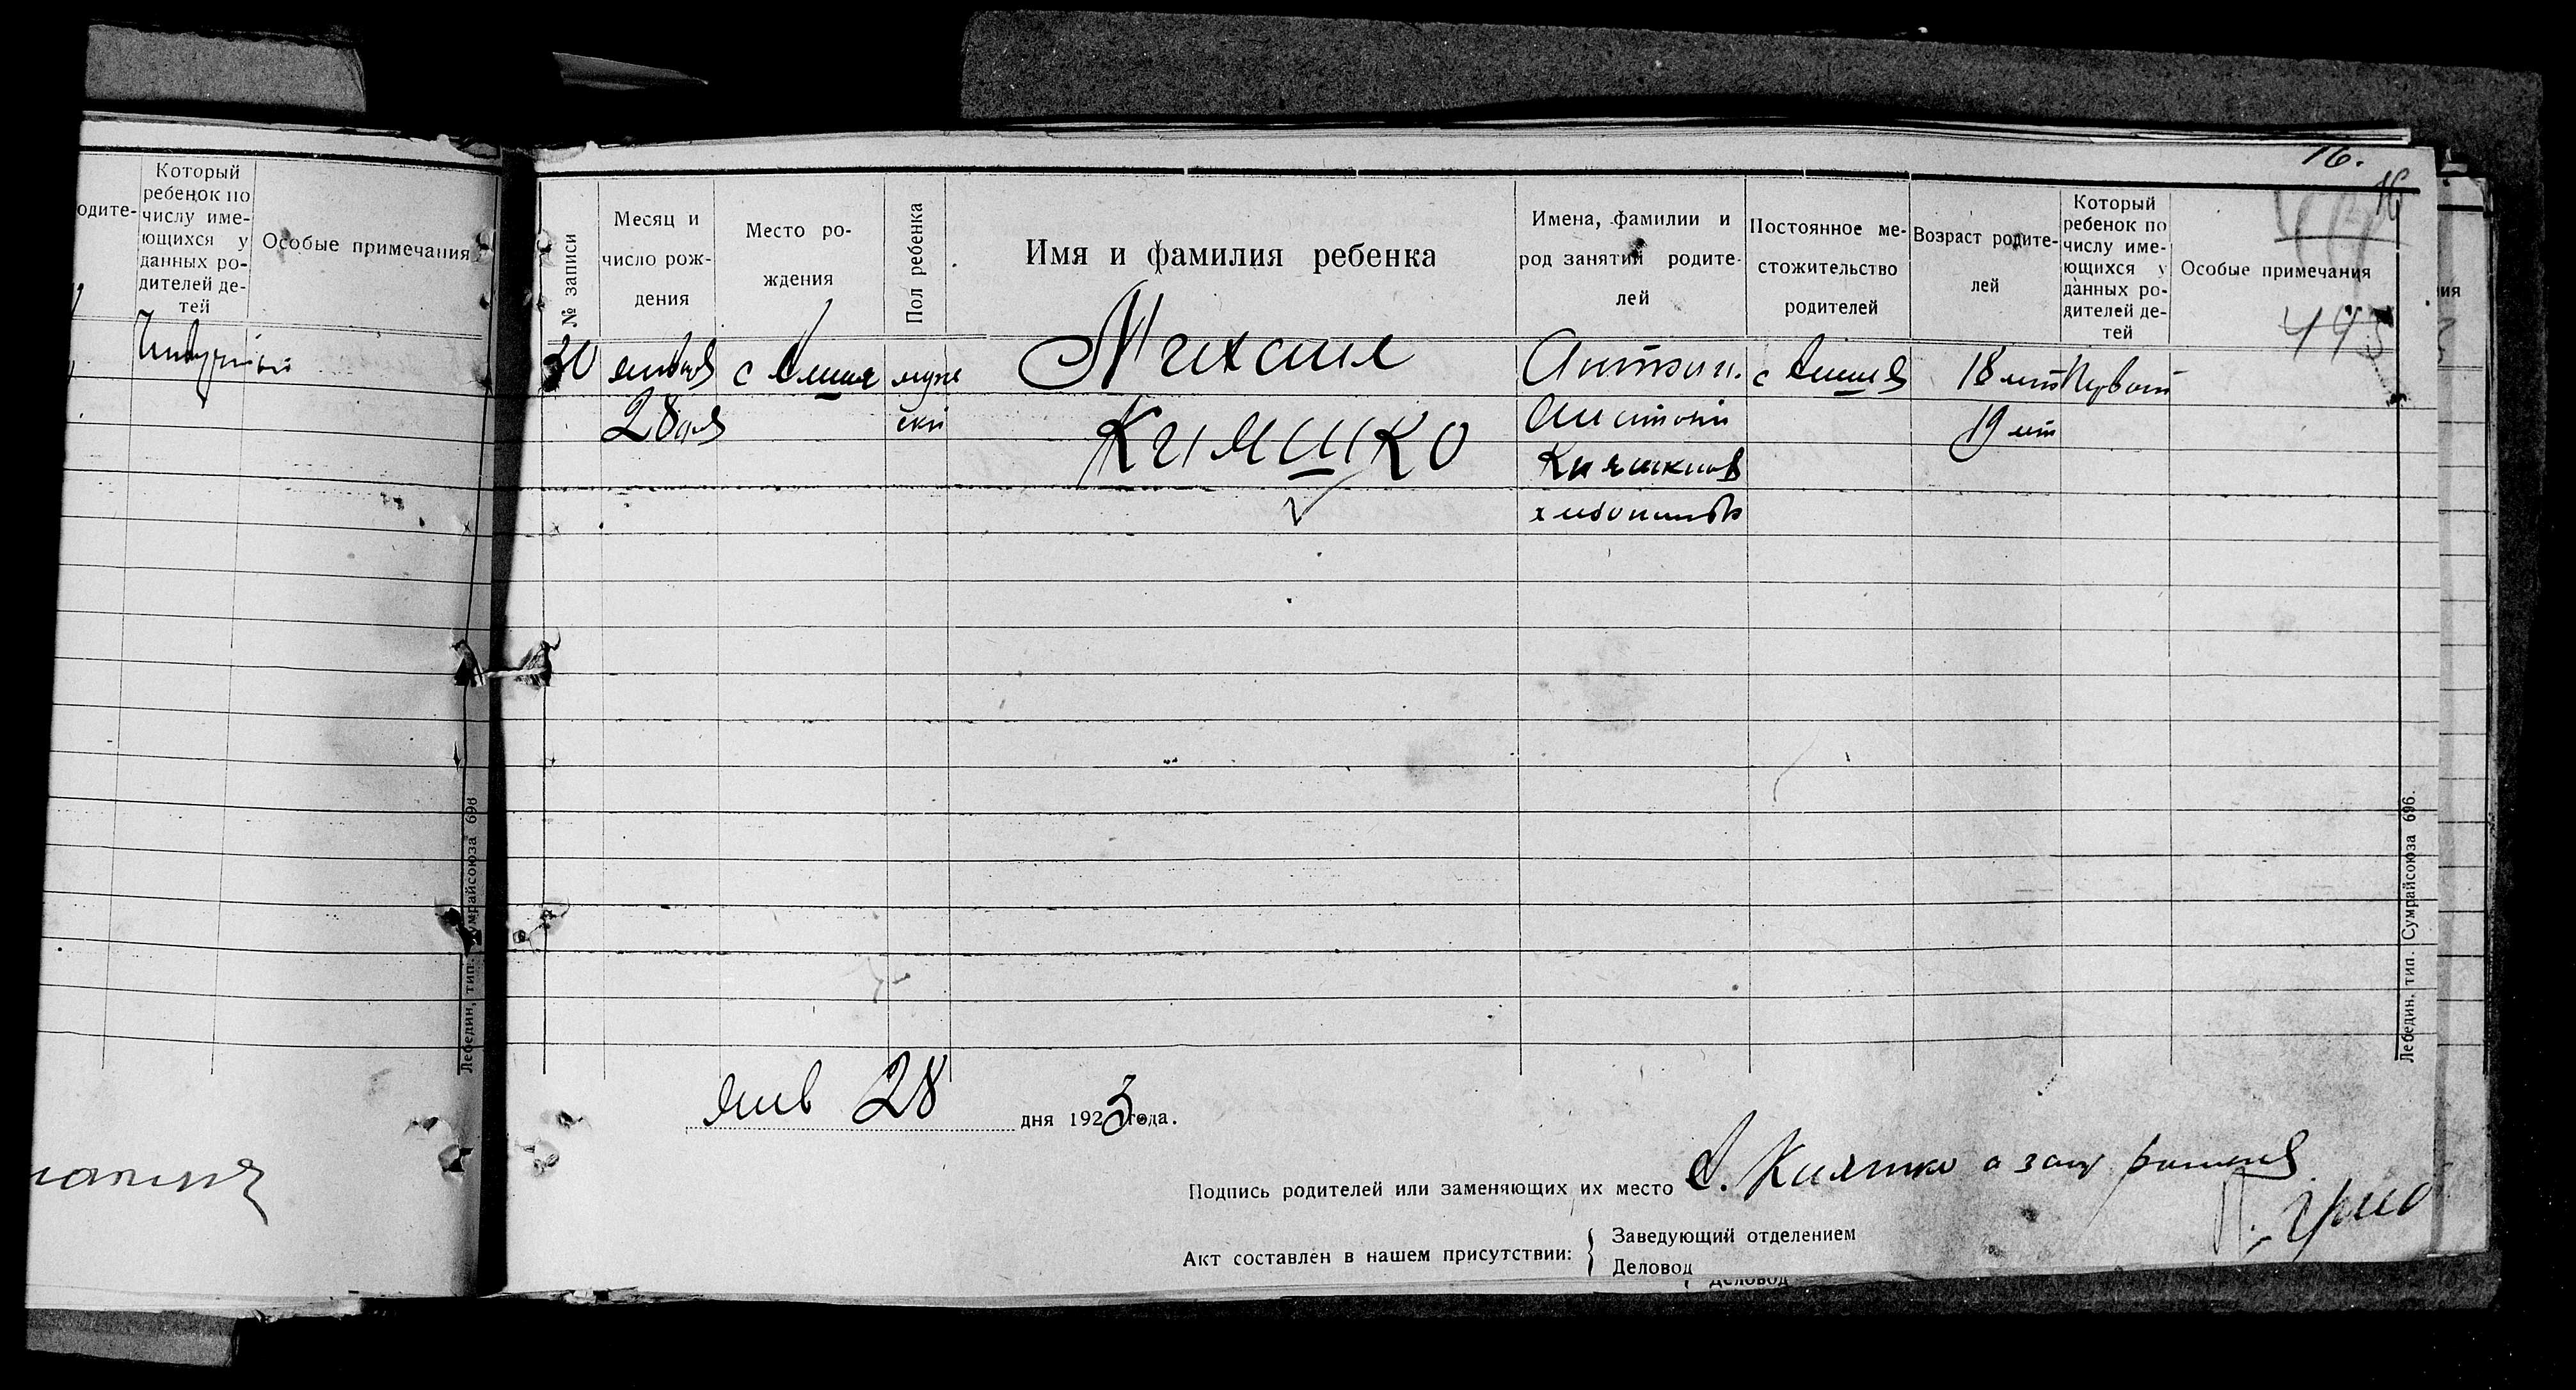 одите-
Который
ребенок по
числу име-
ющихся у
данных ро-
дителей де-
тей
Особые примечания
Лебедин, тип. Сумрайсоюза 696
16.
16
№ записи
Месяц и
число рож-
дения
Место ро-
ждения
Пол ребенка
Имя и фамилия ребенка
Имена, фамилии и
род занятий родите-
лей
Постоянное ме-
стожительство
родителей
Возраст родите-
лей
Который
ребенок по
числу име-
ющихся у
данных ро-
дителей де-
тей
Особые примечания
443
30 января с муже Михаил Антон. с 18 лет Первый
28 дня ский Кияшко 19 лет
Кияшков
Лебедин, тип. Сумрайсоюза 696.
янв 28 дня 1923 года.
Подпись родителей или заменяющих их место А. Кияшко а за
Акт составлен в нашем присутствии: { Заведующий отделением
Деловод
Деловод